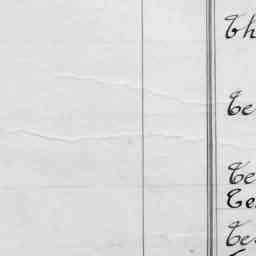 Th
Te
Te
Tes
Tes